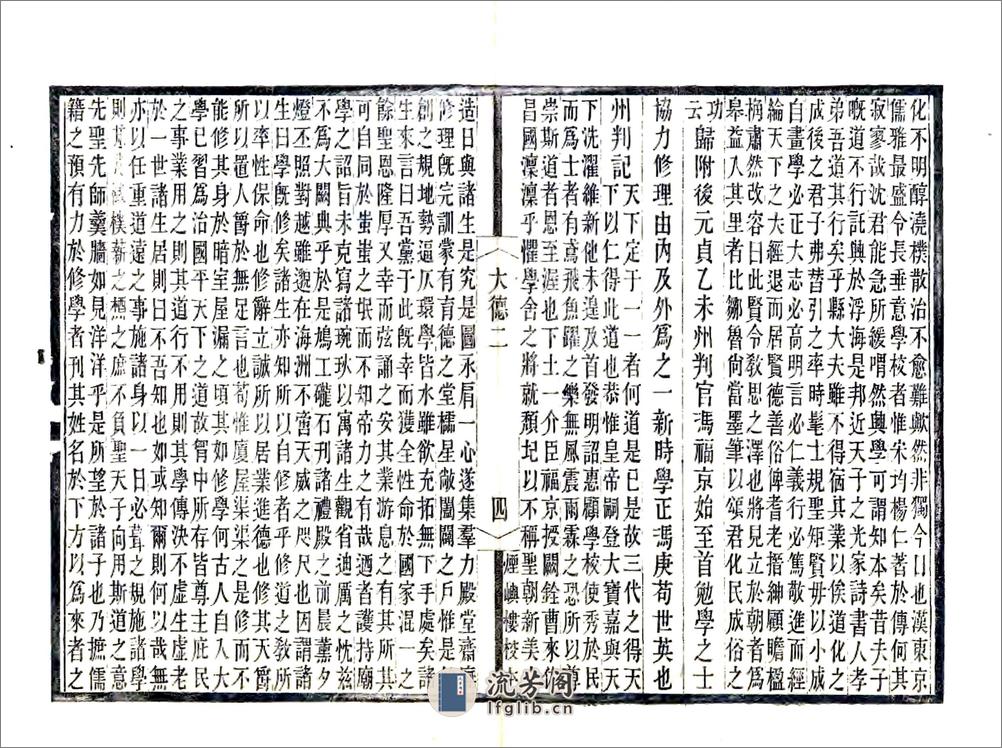 化不明醇澆樸散治不愈難歟然非獨今日也漢東京
儒雅最盛令長垂意學校者惟宋均楊仁著於傳何其
寂寥哉沈君能急所緩喟然興學可謂知本矣昔夫子
嘅道不行託興於浮海是邦近天子之光家詩書人孝
弟吾道其行矣乎縣大夫雖不得其業以俟後
成後之君子弗替引之率時髦士規聖矩賢毋以小成
自畫學必正大志必高明言必仁義行必篤敬進而經
綸天下之大經退而居賢德善俗俾耆老搢紳顧瞻楹
桷肅然改容曰此賢令敎思之澤也立於朝者
皋益入其里者比鄒魯尙當墨筆以頌君化民成俗之
功云 歸附後元貞乙未州判官馮福京始至首勉學之士
協力修理由內及外爲之一新時學正馮庚苟世英也
州判記 天下定于一一者何道是已是故三代之得天
下以仁得此道也恭惟皇帝嗣登大寶嘉與天
下洗濯維新他未遑及首發明詔惠顧學校於民
而爲士者有鳶飛魚躍之樂無風雨震凌之恐所以尊
崇斯道者恩至渥也下土一介臣福京授闕銓曹來佐
昌國凜凜乎懼學舍之將就頹圮以不稱聖朝新美
大德二 四 煙嶼樓校本
造日與諸生是究是圖不肩一心遂集羣力殿堂齋廡
修理旣完訓蒙有育德之堂櫺星敞闔闢之戶惟是
創之規地勢逼仄環學皆水雖欲充拓無下手處矣諸
生來言曰吾黨于此旣幸而獲全性命於國家混一之
餘聖恩隆厚又幸而弦誦之安其業游息之有所其
可自同於蚩蚩之氓而不知帝力之有哉迺者護持廟
學之詔旨未克寫諸琬琰以寓諸生觀省迪厲之忱茲
不爲大闕典乎於是鳩工礲石刊諸禮殿之前晨薰夕
燈丕照對越雖邈在海洲不啻天威之咫尺也因謂諸
生曰學旣修矣諸生亦知所以自修者乎修道之敎所
以率性保命也修辭立誠所以居業進德也修其天爵
所以置人爵於無足言也苟惟廈屋渠渠之是修而不
能修其身於暗室屋漏之頃其如修學何古人自入大
學已習爲治國平天下之道故胷中所存皆尊主庇民
之事業用之則其道行不用則其學傳決不虛生虛老
於一世諸生居則曰不吾知也如或知爾則何以哉無
亦以任重道遠之事施諸身以一日必葺之規施諸學
則其械樸薪之槱之庶不負聖天子向用斯道之意
先聖先師羹牆如見洋洋乎是所望於諸子也乃摭儒
籍之預有力於修學者刊其姓名於下方以爲來者之
流芳阁
lfglib.cn